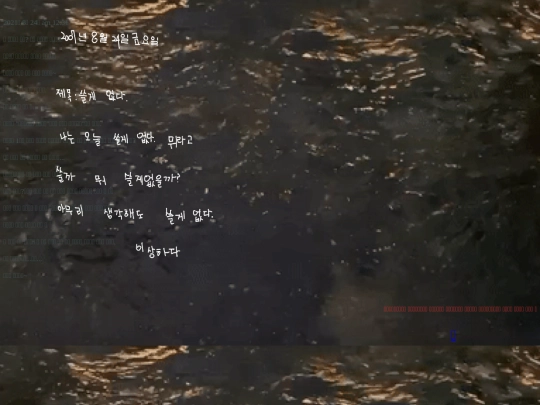 2001년 8월 24일 금요일
제목: 쓸게 없다.
나는 오늘 쓸게 없다. 뭐라고
쓸까 뭐 쓸게없을까?
아무리 생각해도 쓸게 없다.
이상하다